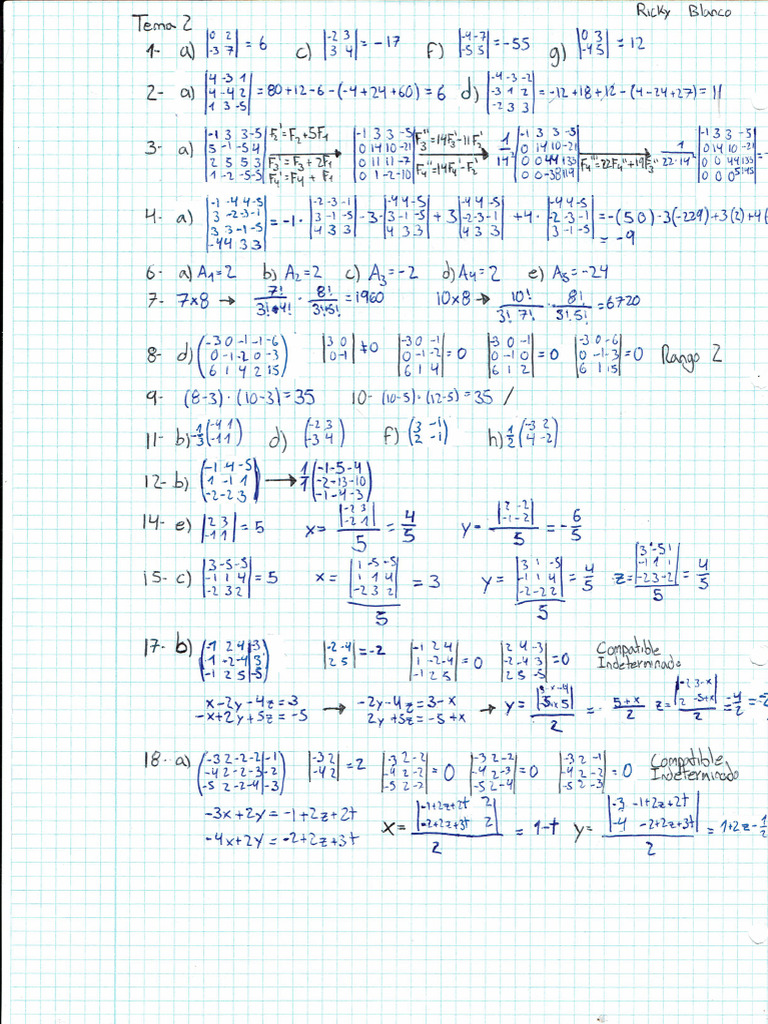 Ricky Blanco
Tema 2
1- a) |0 2; -3 7| = 6 c) |-2 3; 3 4| = -17 f) |-4 -7; -5 5| = -55 g) |0 3; -4 5| = 12
2- a) |4 -3 1; 4 -4 2; 1 3 -5| = 80+12-6-(-4+24+60) = 6 d) |-4 -3 -2; -3 1 2; -2 3 3| = -12+18+12-(4-24+27) = 11
3- a) |-1 3 3 -5; 5 -1 -5 4; 2 5 5 3; 1 -2 -5 -5| F2'=F2+5F1 F3'=F3+2F1 F4'=F4+F1 → |-1 3 3 -5; 0 14 10 -21; 0 11 11 -7; 0 1 -2 -10| F3''=14F3'-11F2' F4''=14F4'-F2' → 1/14² |-1 3 3 -5; 0 14 10 -21; 0 0 44 133; 0 0 -38 119| F4'''=22F4''+19F3'' → 1/22·14² |-1 3 3 -5; 0 14 10 -21; 0 0 44 133; 0 0 0 5145| =
4- a) |-1 -4 4 -5; 3 -2 -3 -1; 3 3 -1 -5; -4 4 3 3| = -1· |-2 -3 -1; 3 -1 -5; 4 3 3| -3· |-4 4 -5; 3 -1 -5; 4 3 3| +3 |-4 4 -5; -2 -3 -1; 4 3 3| +4· |-4 4 -5; -2 -3 -1; 3 -1 -5| = -(50)·3(-229)+3(2)+4(
= -9
6- a) A1=2 b) A2=2 c) A3=-2 d) A4=2 e) A5=-24
7- 7x8 → 7!/3!·4! · 8!/3!·5! = 1960 10x8 → 10!/3! 7! · 8!/3!·5! = 6720
8- d) (-3 0 -1 -1 -6; 0 -1 -2 0 -3; 6 1 4 2 15) |3 0; 0 -1| ≠0 |-3 0 -1; 0 -1 -2; 6 1 4| = 0 |-3 0 -1; 0 -1 0; 6 1 2| = 0 |-3 0 -6; 0 -1 -3; 6 1 15| = 0 Rango 2
9- (8-3)·(10-3)=35 10- (10-5)·(12-5)=35 /
11- b) -1/3 (-4 1; -1 1) d) (-2 3; -3 4) f) (3 -1; 2 -1) h) 1/2 (-3 2; 4 -2)
12- b) (-1 4 -5; 1 -1 1; -2 -2 3) → 1/1 (-1 -5 -4; -2 -13 -10; -1 -4 -3)
14- e) |2 3; -1 1| = 5 x= |-2 3; -2 1| / 5 = 4/5 y= |2 -2; -1 -2| / 5 = -6/5
15- c) |3 -5 -5; -1 1 4; -2 3 2| = 5 x= |1 -5 -5; 1 1 4; -2 3 2| / 5 = 3 y= |3 1 -5; -1 1 4; -2 -2 2| / 5 = 4/5 z= |3 -5 1; -1 1 1; -2 3 -2| / 5 = 4/5
17- b) (-1 2 4 3; 1 -2 -4 3; -1 2 5 -5) |-2 -4; 2 5| = -2 |-1 2 4; 1 -2 -4; -1 2 5| = 0 |2 4 -3; -2 -4 3; 2 5 -5| = 0 Compatible
Indeterminado
x-2y-4z=3 → -2y-4z=3-x → y= / 2 = - 5+x/2 z= |-2 3-x; 2 -5+x| / 2 = -4/2 =
-x+2y+5z=-5 2y+5z=-5+x
18- a) (-3 2 -2 -2 -1; -4 2 -2 -3 -2; -5 2 -2 -4 -3) |-3 2; -4 2| = 2 |-3 2 -2; -4 2 -2; -5 2 -2| = 0 |-3 2 -2; -4 2 -3; -5 2 -4| = 0 |-3 2 -1; -4 2 -2; -5 2 -3| = 0 Compatible
Indeterminado
-3x+2y = -1+2z+2t x= |-1+2z+2t 2; -2+2z+3t 2| / 2 = 1-t y= |-3 -1+2z+2t; -4 -2+2z+3t| / 2 = 1+2z-1/2
-4x+2y = -2+2z+3t